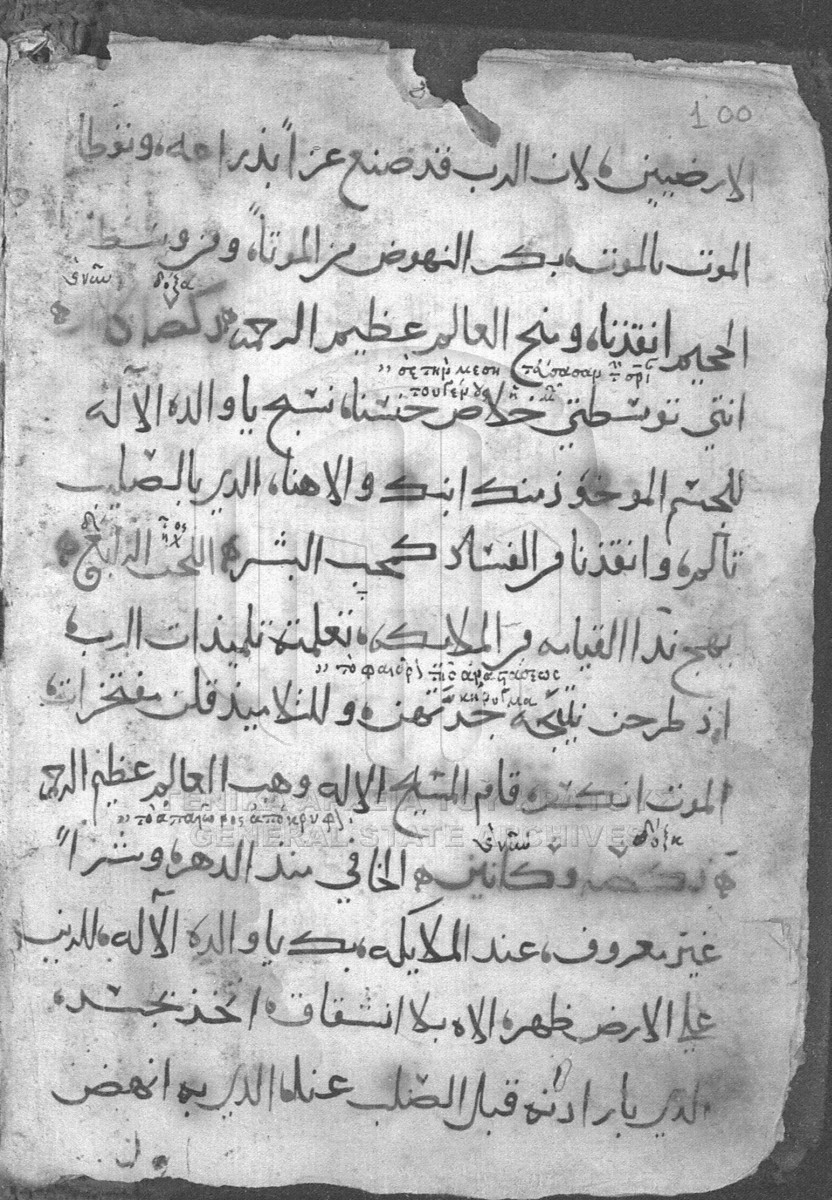 100
الارضيين، لان الرب قد صنع عزاً بذراعه، ووطا
الموت بالموت، بكر النهوض من الموتا، ومن وسط
ἐνᾶω δόξα
الجحيم انقذنا، ومنح العالم عظيم الرحمه
σὲ τὴν μεση
انتي توسطتي خلاص جنسنا، نسبح يا والدة الآله
للجسم الموخود منك ابنك والاهنا، الدي بالصليب
تالم، وانقذنا من الفساد كمحب البشر، اللحن الرابع
بهج ندا القيامه من الملايكه، تعلمتة تلميدات الرب،
τὸ φαιδρ τῆς ἀναστάσεως κήρυγμα
اذ طرحن نتيجة جدتهن، وللتلاميذ قلن مفتخرات
الموت انكسر، قام المسيح الاله وهب العالم عظيم الرحمه
τὸ ἀπαιῶνος ἀποκρυφ ἐνᾶω δόξα
وكانين الخافي مند الدهر، وسراً
غير معروف، عند الملايكه، بك يا والدة الآله، للدين
علي الارض ظهر، الاه بلا انشقاق، اخد تجسد،
الدي بارادته قبل الصلب عنا، الدي به انهض